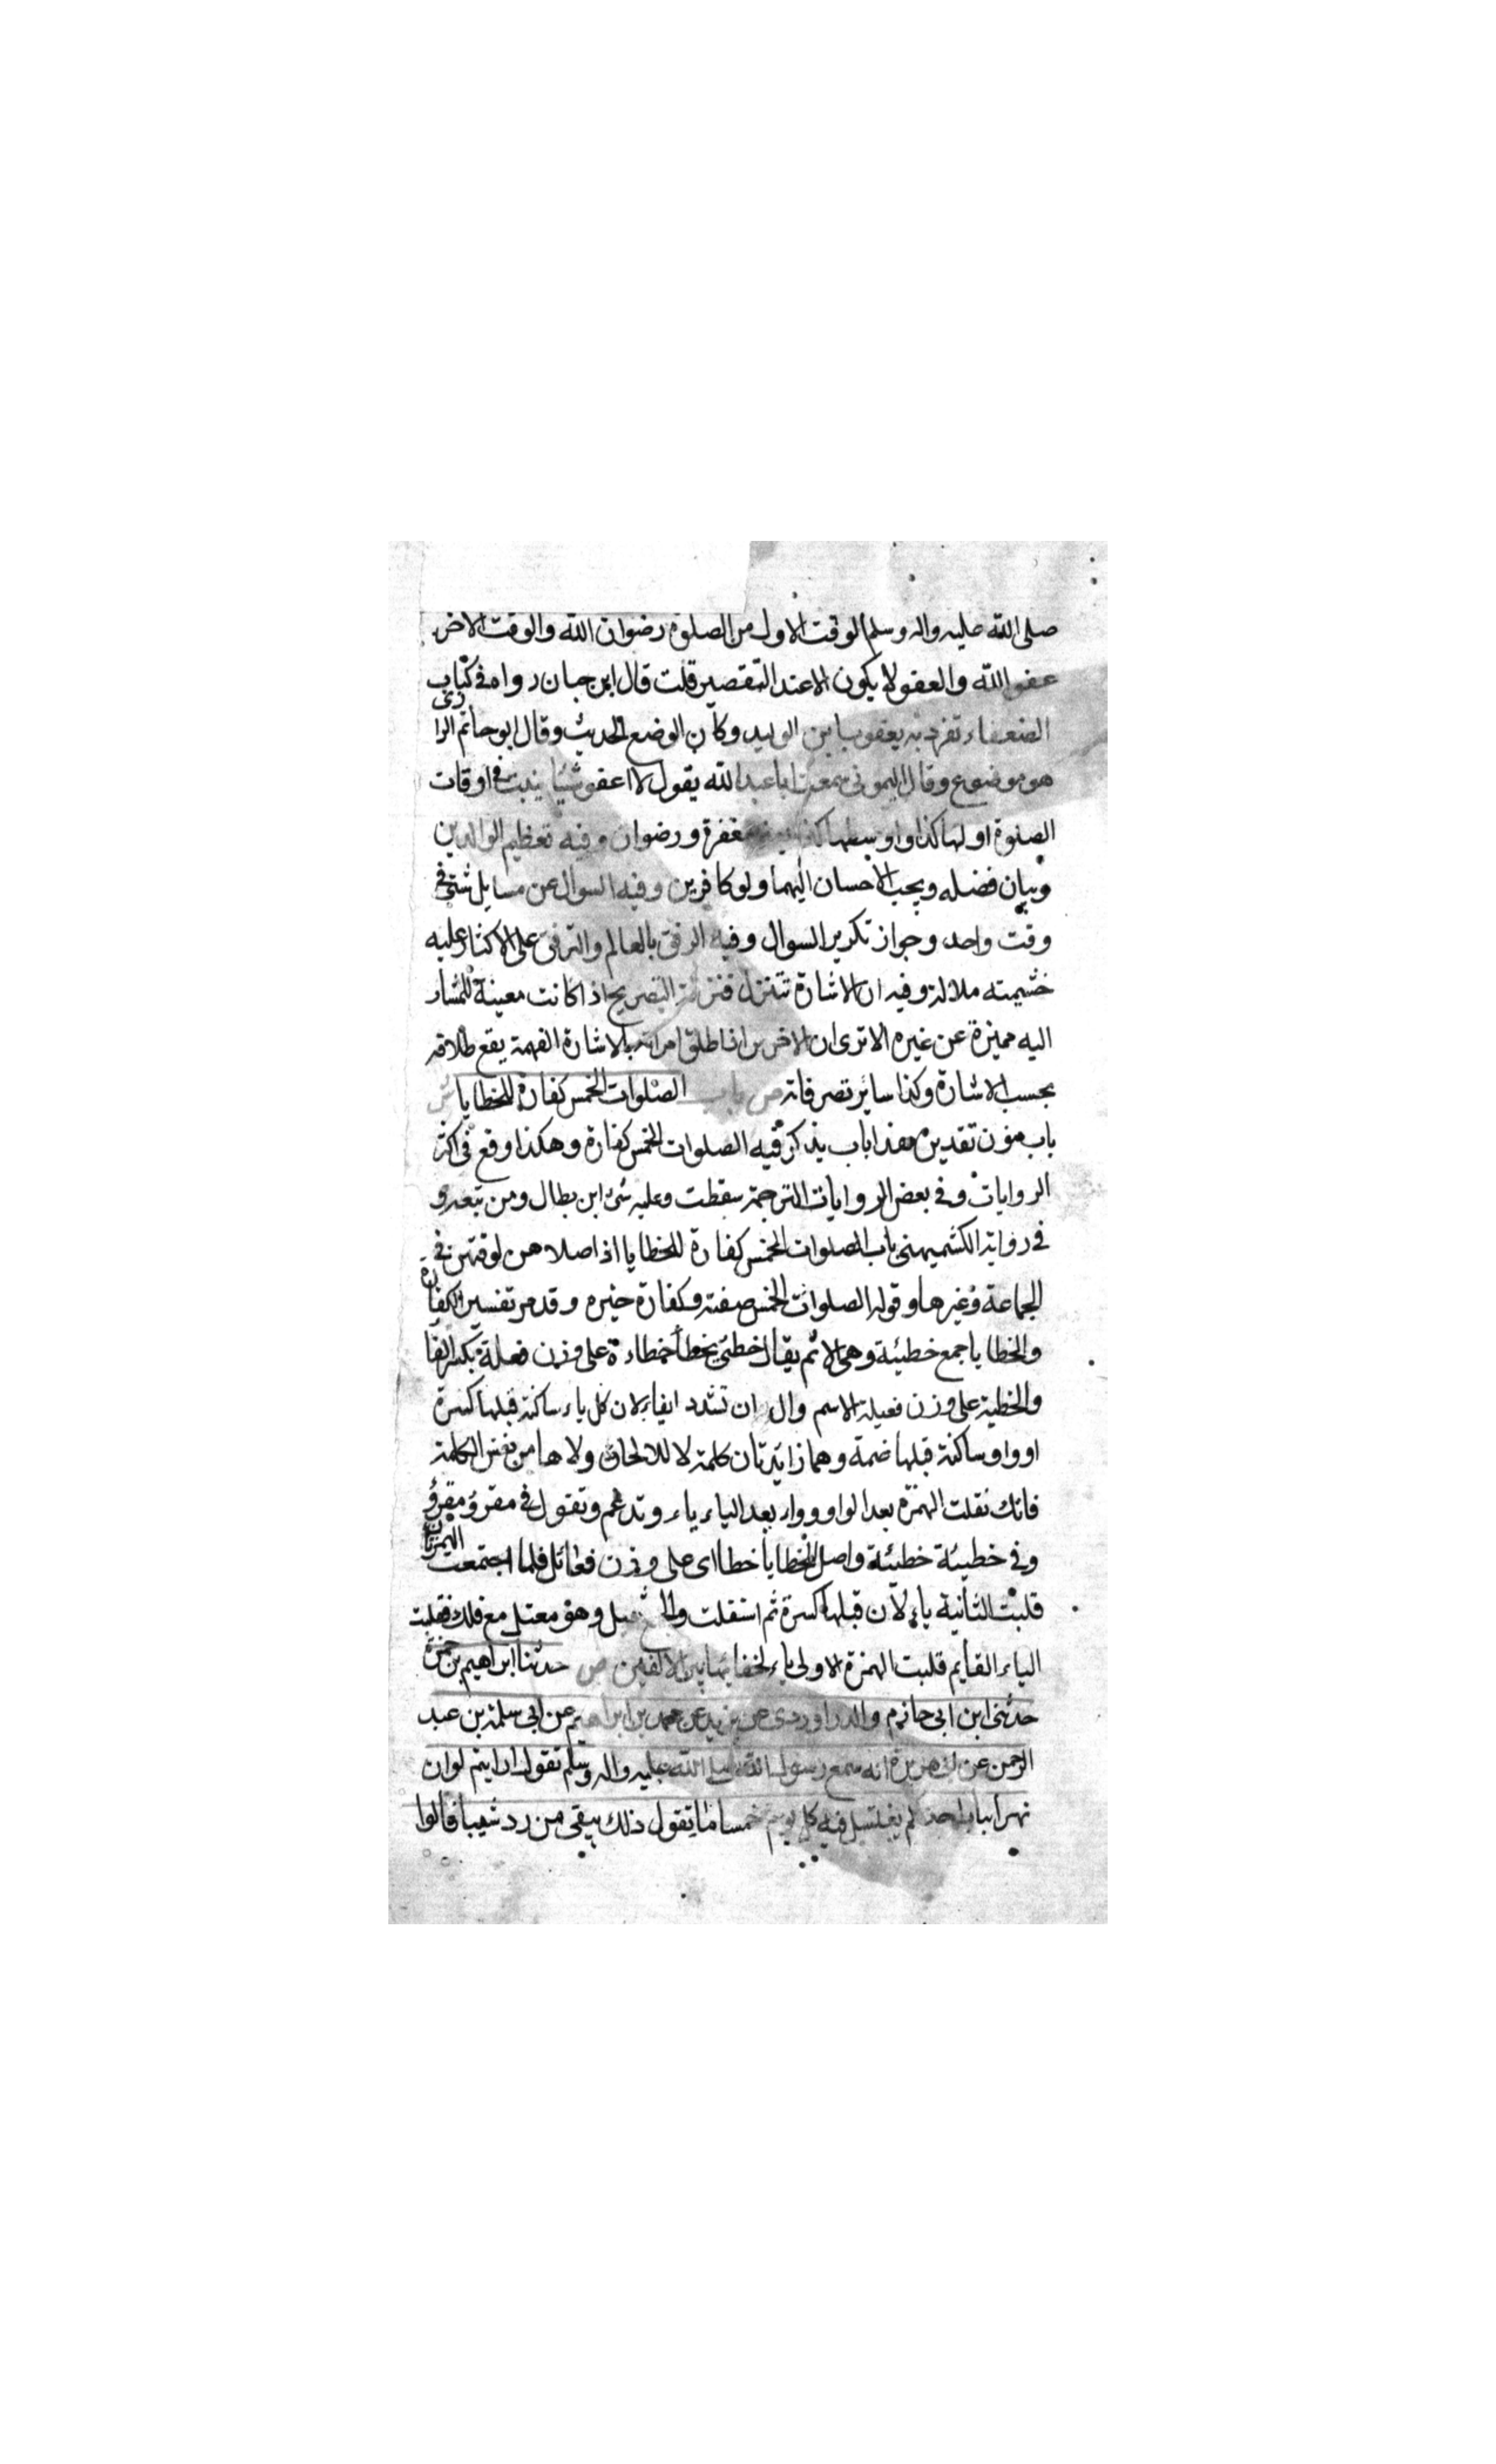 صلى الله عليه واله وسلم الوقت الاول من الصلوة رضوان الله والوقت الاخر
عفو الله والعفو لا يكون الا عند التقصير قلت قال ابن حبان رواه في كتاب
الضعفاء تفرد به يعقوب بن الوليد وكان الوضع الحديث وقال ابو حاتم الرازى
هو موضوع وقال الميمونى سمعت ابا عبد الله يقول لا اعفو شيئا يثبت في اوقات
الصلوة اولها كذا واوسطها كذا مغفرة ورضوان وفيه تعظيم الوالدين
وبيان فضله ويجب الاحسان اليهما ولو كافرين وفيه السوال عن مسايل شتى في
وقت واحد وجواز تكرير السوال وفيه الرفق بالعالم والترفق على الاكثار عليه
خشيته ملالة وفيه ان الاشارة تتنزل التصريح اذا كانت معينة للمشار
اليه مميزة عن غيره الا ترى ان الاخرس اذا طلق امراته بالاشارة الفهمة يقع طلاقه
بحسب الاشارة وكذا ساير تصرفاته ص باب الصلوات الخمس كفارة للخطايا ش
باب منون تقديره هذا باب يذكر فيه الصلوات الخمس كفارة وهكذا وقع في اكثر
الروايات وفي بعض الروايات الترجمة سقطت وعليه شى ابن بطال ومن تبعه و
في رواية الكشميهنى باب الصلوات الخمس كفارة للخطايا اذا صلاهن لوقتهن في
الجماعة وغيرها وقوله الصلوات الخمس صفته وكفارة خبره وقد مر تفسير الكفارة
والخطايا جمع خطيئة وهى الاثم يقال خطئ يخطأ خطاءة على وزن فعلة بكسر الفا
والخطية على وزن فعيلة الاسم وال ان تشدد الياء لان كل ياء ساكنة قبلها كسرة
او واو ساكنة قبلها ضمة وهما زائدتان كلمة لا للالحاق ولا هما من نفس الكلمة
فانك نقلت الهمزة بعد الواو وواو بعد الياء ياء وتدغم وتقول في مقروء مقرو
وفي خطيئة خطيئة واصل الخطايا خطااى على وزن فعائل فلما اجتمعت الهمزتان
قلبت الثانية ياء لان قبلها كسرة ثم استقلت والجمع ثقيل وهو معتل مع ذلك فقلبت
الياء القايم قلبت الهمزة الاولى ياء لخفايها بين الالفين ص حدثنا ابراهيم بن حمزة
حدثنى ابن ابى حازم والدراوردى عن يزيد عن محمد بن ابراهيم عن ابى سلمة بن عبد
الرحمن عن ابى هريرة انه سمع رسول الله صلى الله عليه واله وسلم تقول ارايتم لو ان
نهرا بباب احدكم يغتسل فيه كل يوم خمسا ما تقول ذلك يبقى من رد شيبا قالوا